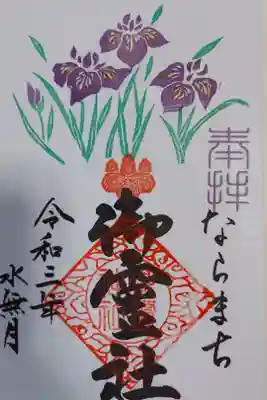 奉拝
ならまち
御霊社
令和三年
水無月